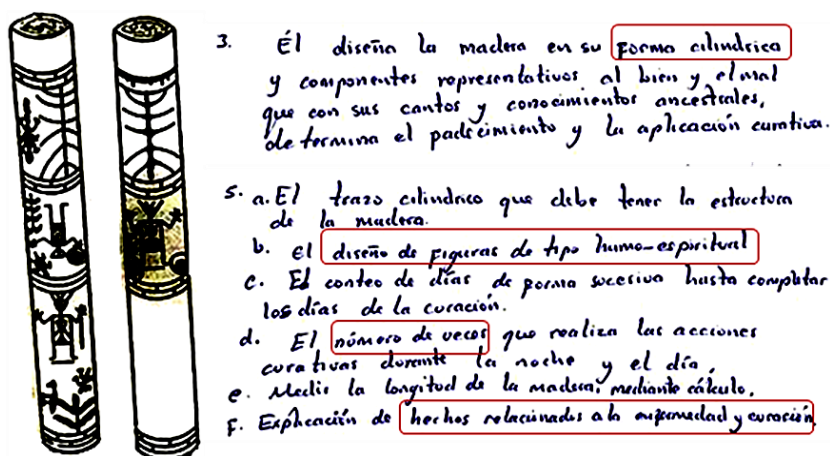 3. Él diseña la madera en su forma cilindrica
y componentes representativos al bien y el mal
que con sus cantos y conocimientos ancestrales,
determina el padecimiento y la aplicación curativa.
5. a. El trazo cilindrico que debe tener la estructura
de la madera.
b. El diseño de figuras de tipo humo-espiritual
c. El conteo de días de forma sucesiva hasta completar
los días de la curación.
d. El número de veces que realiza las acciones
curativas durante la noche y el día.
e. Medir la longitud de la madera, mediante cálculo.
F. Explicación de hechos relacionados a la enfermedad y curación.